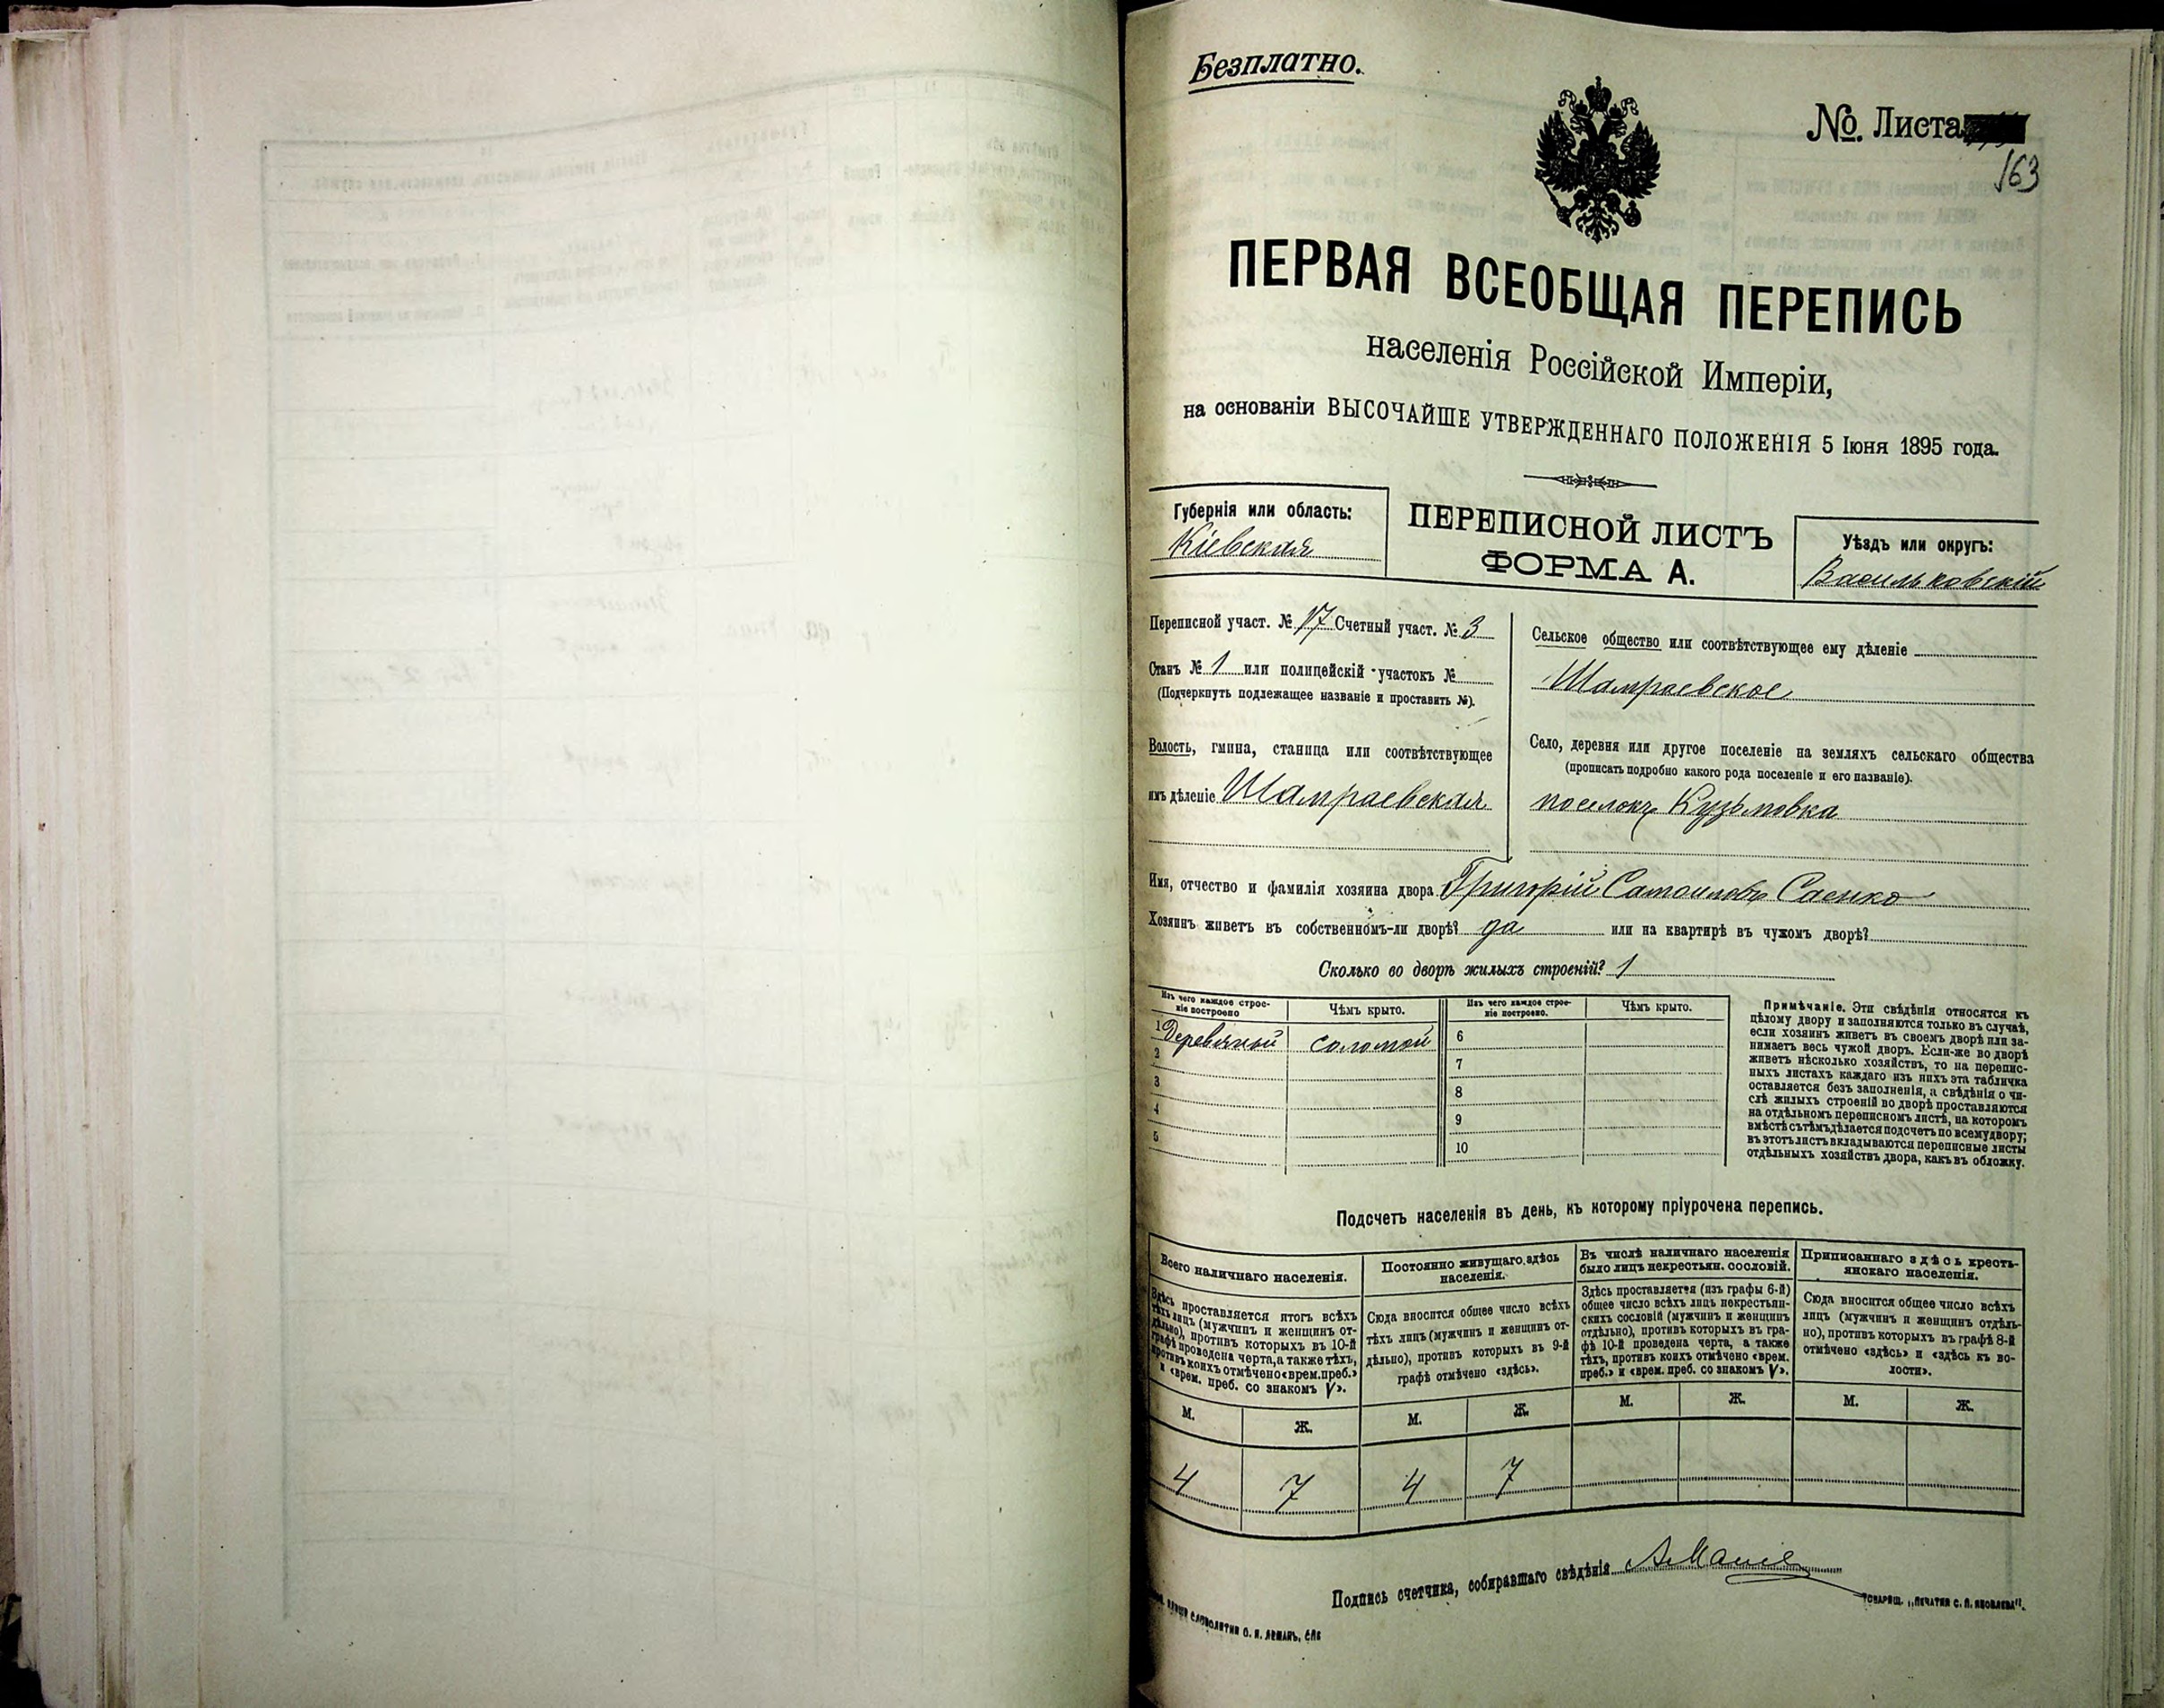 Безплатно.
№. Листа
163
ПЕРВАЯ ВСЕОБЩАЯ ПЕРЕПИСЬ
населенія Россійской Имперіи,
на основаніи ВЫСОЧАЙШЕ УТВЕРЖДЕННАГО ПОЛОЖЕНІЯ 5 Іюня 1895 года.
Губернія или область:
Кіевская
ПЕРЕПИСНОЙ ЛИСТЪ
ФОРМА А.
Уѣздъ или округъ:
Васильковскій
Переписной участ. № 17 Счетный участ. № 3
Станъ № 1 или полицейскій участокъ №
(Подчеркнуть подлежащее названіе и проставить №).
Волость, гмина, станица или соотвѣтствующее
имъ дѣленіе Шамраевская
Сельское общество или соотвѣтствующее ему дѣленіе
Шамраевское
Село, деревня или другое поселеніе на земляхъ сельскаго общества
(прописать подробно какого рода поселеніе и его названіе).
поселокъ Кузьмовка
Имя, отчество и фамилія хозяина двора Григорій Самоиловъ Саенко
Хозяинъ живетъ въ собственномъ-ли дворѣ? да или на квартирѣ въ чужомъ дворѣ?
Сколько во дворѣ жилыхъ строеній? 1
Изъ чего каждое строе-
ніе построено
Чѣмъ крыто.
Изъ чего каждое строе-
ніе построено.
Чѣмъ крыто.
1 Деревяный соломой 6
2 7
3 8
4 9
5 10
Примѣчаніе. Эти свѣдѣнія относятся къ
цѣлому двору и заполняются только въ случаѣ,
если хозяинъ живетъ въ своемъ дворѣ или за-
нимаетъ весь чужой дворъ. Если-же во дворѣ
живетъ нѣсколько хозяйствъ, то на перепис-
ныхъ листахъ каждаго изъ нихъ эта табличка
оставляется безъ заполненія, а свѣдѣнія о чи-
слѣ жилыхъ строеній во дворѣ проставляются
на отдѣльномъ переписномъ листѣ, на которомъ
вмѣстѣ съ тѣмъ дѣлается подсчетъ по всему двору;
въ этотъ листъ вкладываются переписные листы
отдѣльныхъ хозяйствъ двора, какъ въ обложку.
Подсчетъ населенія въ день, къ которому пріурочена перепись.
Всего наличнаго населенія.
Здѣсь проставляется итогъ всѣхъ
тѣхъ лицъ (мужчинъ и женщинъ от-
дѣльно), противъ которыхъ въ 10-й
графѣ проведена черта, а также тѣхъ,
противъ коихъ отмѣчено «врем. преб.»
и «врем. преб. со знакомъ V».
Постоянно живущаго здѣсь
населенія.
Сюда вносится общее число всѣхъ
тѣхъ лицъ (мужчинъ и женщинъ от-
дѣльно), противъ которыхъ въ 9-й
графѣ отмѣчено «здѣсь».
Въ числѣ наличнаго населенія
было лицъ некрестьян. сословій.
Здѣсь проставляется (изъ графы 6-й)
общее число всѣхъ лицъ некрестьян-
скихъ сословій (мужчинъ и женщинъ
отдѣльно), противъ которыхъ въ гра-
фѣ 10-й проведена черта, а также
тѣхъ, противъ коихъ отмѣчено «врем.
преб.» и «врем. преб. со знакомъ V».
Приписаннаго здѣсь кресть-
янскаго населенія.
Сюда вносится общее число всѣхъ
лицъ (мужчинъ и женщинъ отдѣль-
но), противъ которыхъ въ графѣ 8-й
отмѣчено «здѣсь» и «здѣсь къ во-
лости».
М. Ж. М. Ж. М. Ж. М. Ж.
4 7 4 7
Подпись счетчика, собиравшаго свѣдѣнія
СЛОВОЛИТНИ О. И. ЛЕМАНЪ, СПБ
ТОВАРИЩ. „ПЕЧАТНИ С. П. ЯКОВЛЕВА".